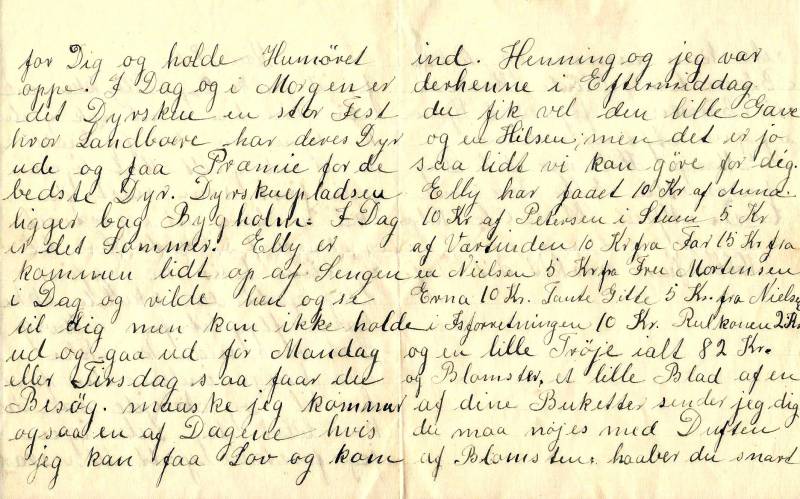 for Dig og holde Humöret
oppe. I Dag og i Morgen er
det Dyrskue en stor Fest
hvor Landboere har deres Dyr
ude og faa Præmie for de
bedste Dyr. Dyrskuepladsen
ligger bag Bygholm. I Dag
er det Sommer. Elly er
kommen lidt op af Sengen
i Dag og vilde hen og se
til dig men kan ikke holde
ud og gaa ud för Mandag
eller Tirsdag saa faar du
Besög. maaske jeg kommer
ogsaa en af Dagene hvis
jeg kan faa Lov og kom
ind. Henning og jeg var
derhenne i Eftermiddag
du fik vel den lille Gave
og en Hilsen, men det er jo
saa lidt vi kan göre for dig.
Elly har faaet 10 Kr af Anna.
10 Kr af Petersen i Stuen 5 Kr
af Værtinden 10 Kr fra Far 15 Kr fra
en Nielsen 5 Kr fra Fru Mortensen
Erna 10 Kr. Tante Gitte 5 Kr. fra Nielsen
i Isforretningen 10 Kr. Rulkonen 2 Kr
og en lille Tröje ialt 82 Kr.
og Blomster, et lille Blad af en
af dine Buketter sender jeg dig
du maa nöjes med Duften
af Blomsten. haaber du snart